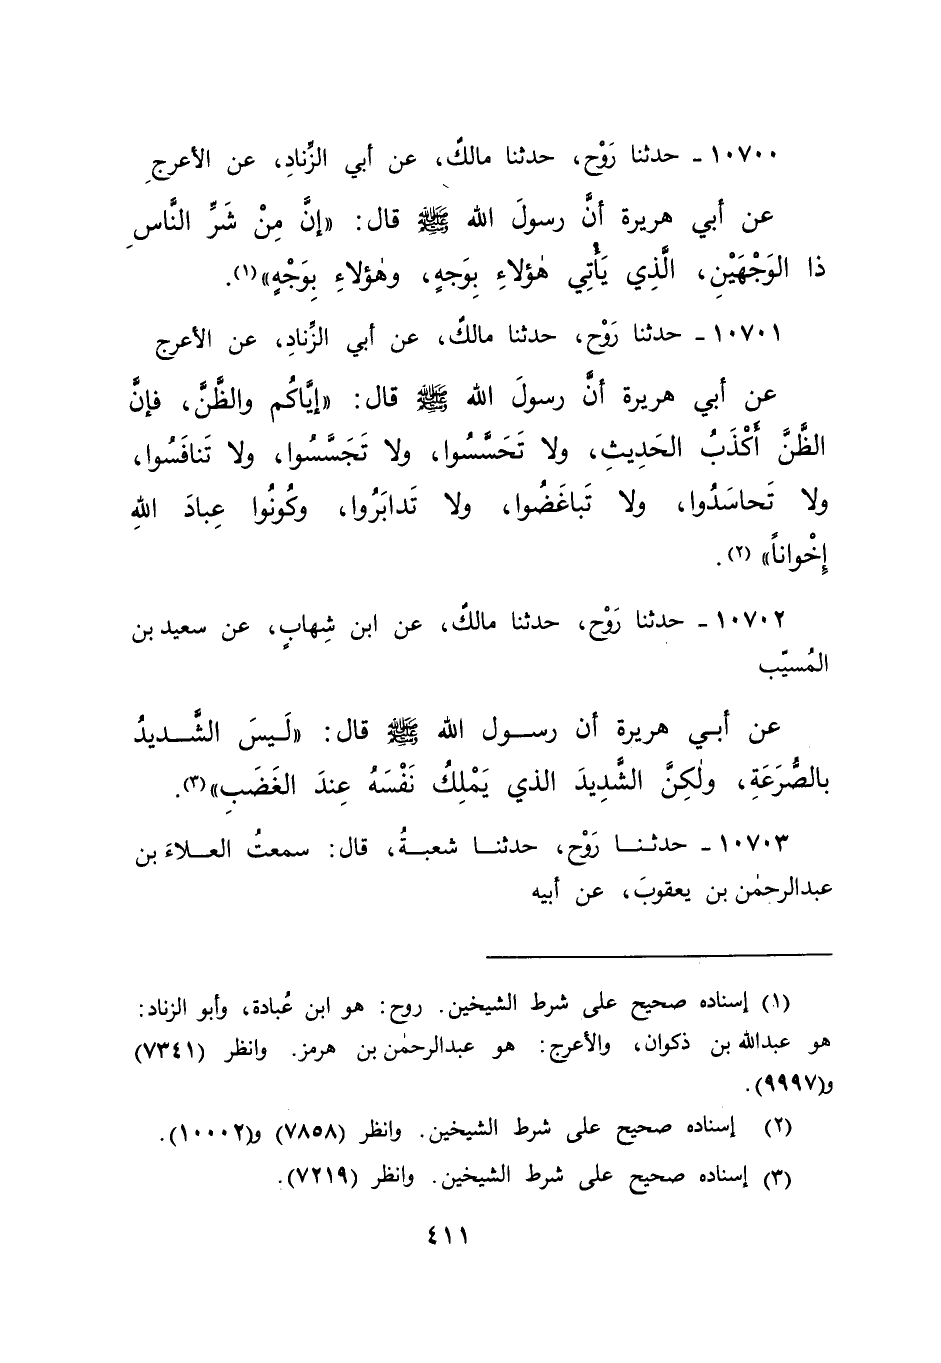 ١٠٧٠٠ - حدثنا رَوْح، حدثنا مالكٌ، عن أبي الزِّنادِ، عن الأعرجِ
عن أبي هريرة أنَّ رسولَ الله ﷺ قال: «إنَّ مِنْ شَرِّ النَّاسِ
ذا الوَجْهَيْنِ، الَّذِي يَأْتِي هٰؤلاءِ بِوَجهٍ، وهٰؤلاءِ بِوَجْهٍ»(١).
١٠٧٠١ - حدثنا رَوْح، حدثنا مالكٌ، عن أبي الزِّنادِ، عن الأعرج
عن أبي هريرة أنَّ رسولَ الله ﷺ قال: «إيَّاكُم والظَّنَّ، فإنَّ
الظَّنَّ أَكْذَبُ الحَدِيثِ، ولا تَحَسَّسُوا، ولا تَجَسَّسُوا، ولا تَنافَسُوا،
ولا تَحاسَدُوا، ولا تَباغَضُوا، ولا تَدابَرُوا، وكُونُوا عِبادَ اللهِ
إِخْواناً» (٢).
١٠٧٠٢ - حدثنا رَوْح، حدثنا مالكٌ، عن ابن شِهابٍ، عن سعيد بن
المُسيّب
عن أبي هريرة أن رسول الله ﷺ قال: «لَيسَ الشَّديدُ
بالصُّرَعَةِ، ولٰكِنَّ الشَّدِيدَ الذي يَمْلِكُ نَفْسَهُ عِندَ الغَضَبِ»(٣).
١٠٧٠٣ - حدثنا رَوْح، حدثنا شعبةُ، قال: سمعتُ العلاءَ بن
عبدالرحمٰن بن يعقوبَ، عن أبيه
(١) إسناده صحيح على شرط الشيخين. روح: هو ابن عُبادة، وأبو الزناد:
هو عبدالله بن ذكوان، والأعرج: هو عبدالرحمٰن بن هرمز. وانظر (٧٣٤١)
و(٩٩٩٧).
(٢) إسناده صحيح على شرط الشيخين. وانظر (٧٨٥٨) و(١٠٠٠٢).
(٣) إسناده صحيح على شرط الشيخين. وانظر (٧٢١٩).
٤١١